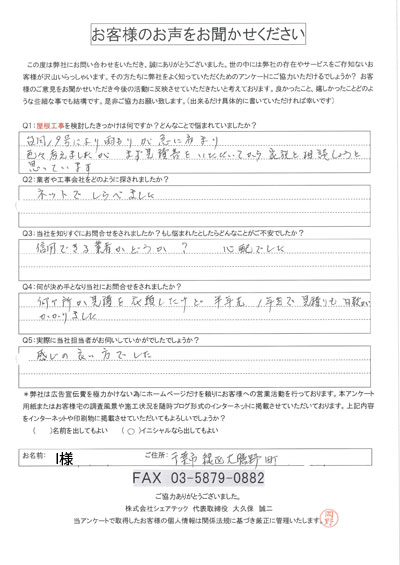 お客様のお声をお聞かせください
この度は弊社にお問い合わせをいただき、誠にありがとうございました。世の中には弊社の存在やサービスをご存知ないお
客様が沢山いらっしゃいます。その方たちに弊社をよく知っていただくためのアンケートにご協力いただけるでしょうか？ お客
様のご意見をお聞かせいただき今後の活動に反映させていただきたいと考えております。良かったこと、嬉しかったことどのよ
うな些細な事でも結構です。是非ご協力お願い致します。（出来るだけ具体的に書いていただければ幸いです）
Q1：屋根工事を検討したきっかけは何ですか？どんなことで悩まれていましたか？
台風19号により雨もりが急に始まり
色々考えましたが まず見積書をいただいてから家族と相談しようと
思っています
Q2：業者や工事会社をどのように探されましたか？
ネットでしらべました
Q3：当社を知りすぐにお問合せをされましたか？もし悩まれたとしたらどんなことがご不安でしたか？
信用できる業者かどうか？ 心配でした
Q4：何が決め手となり当社にお問合せをされましたか？
何ケ所か見積を依頼したけど
かかりました
Q5：実際に当社担当者がお伺いしていかがでしたでしょうか？
感じの良い方でした
＊弊社は広告宣伝費を極力かけない為にホームページだけを頼りにお客様への営業活動を行っております。本アンケート
用紙またはお客様宅の調査風景や施工状況を随時ブログ形式のインターネットに掲載させていただいております。上記内容
をインターネットや印刷物に掲載させていただいてもよろしいでしょうか？
（ ）名前を出してもよい （○）イニシャルなら出してもよい
お名前： I様 ご住所： 千葉市緑区大膳野町
FAX 03-5879-0882
ご協力ありがとうございました。
株式会社シェアテック 代表取締役 大久保 誠二
当アンケートで取得したお客様の個人情報は関係法規に基づき厳正に管理いたします。